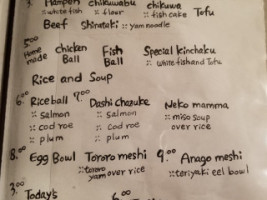 3. Hampen chikuwabu chikuwa Tofu
:: white fish :: flour :: fish cake
Beef Shirataki :: yam noodle
5.00
Home made chicken Ball Fish Ball Special Kinchaku
:: white fish and Tofu
Rice and Soup
6. Rice ball 9.00 Dashi chazuke Neko mamma
:: salmon :: salmon :: miso soup
:: cod roe :: cod roe over rice
:: plum :: plum
8.00 Egg Bowl Tororo meshi 9.00 Anago meshi
:: tororo yam over rice :: teriyaki eel bowl
3.00 Today's